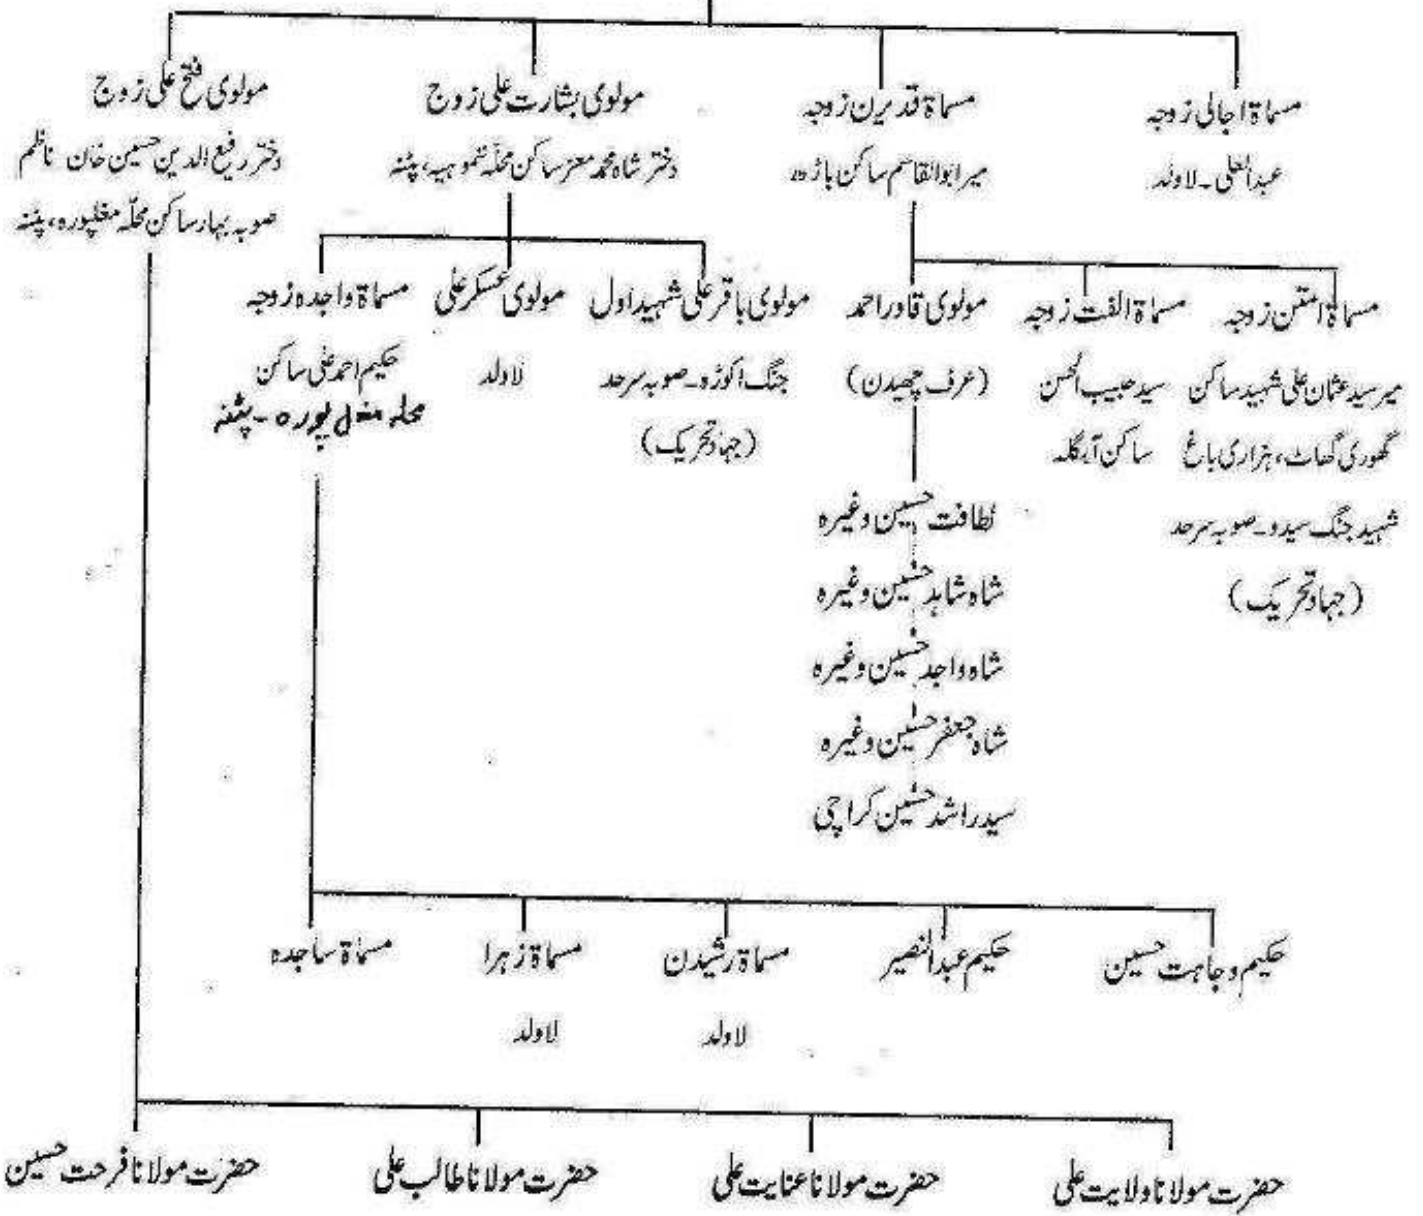 مسماۃ اجالی زوجہ
عبدالعلی۔ لاولد
مسماۃ قدیرن زوجہ
میر ابوالقاسم ساکن باڑھ
مولوی بشارت علی زوج
دختر شاہ محمد معز ساکن محلّہ نموہیہ، پٹنہ
مولوی فتح علی زوج
دختر رفیع الدین حسین خان ناظم
صوبہ بہار ساکن محلّہ مغلپورہ، پٹنہ
مسماۃ امتن زوجہ
میر سید عثمان علی شہید ساکن
گھوری گھاٹ، ہزاری باغ
شہید جنگ سیدو۔ صوبہ سرحد
(جہاد تحریک)
مسماۃ الفت زوجہ
سید حبیب الحسن
ساکن آبگلہ
مولوی قادر احمد
(عرف چھیدن)
لطافت حسین وغیرہ
شاہ شاہد حسین وغیرہ
شاہ واجد حسین وغیرہ
شاہ جعفر حسین وغیرہ
سید راشد حسین کراچی
مولوی باقر علی شہید اول
جنگ اکوڑہ۔ صوبہ سرحد
(جہاد تحریک)
مولوی عسکر علی
لاولد
مسماۃ واجدہ زوجہ
حکیم احمد علی ساکن
محلہ مغل پورہ - پٹنہ
حکیم وجاہت حسین
حکیم عبدالنصیر
مسماۃ رشیدن
لاولد
مسماۃ زہرا
لاولد
مسماۃ ساجدہ
حضرت مولانا ولایت علی
حضرت مولانا عنایت علی
حضرت مولانا طالب علی
حضرت مولانا فرحت حسین